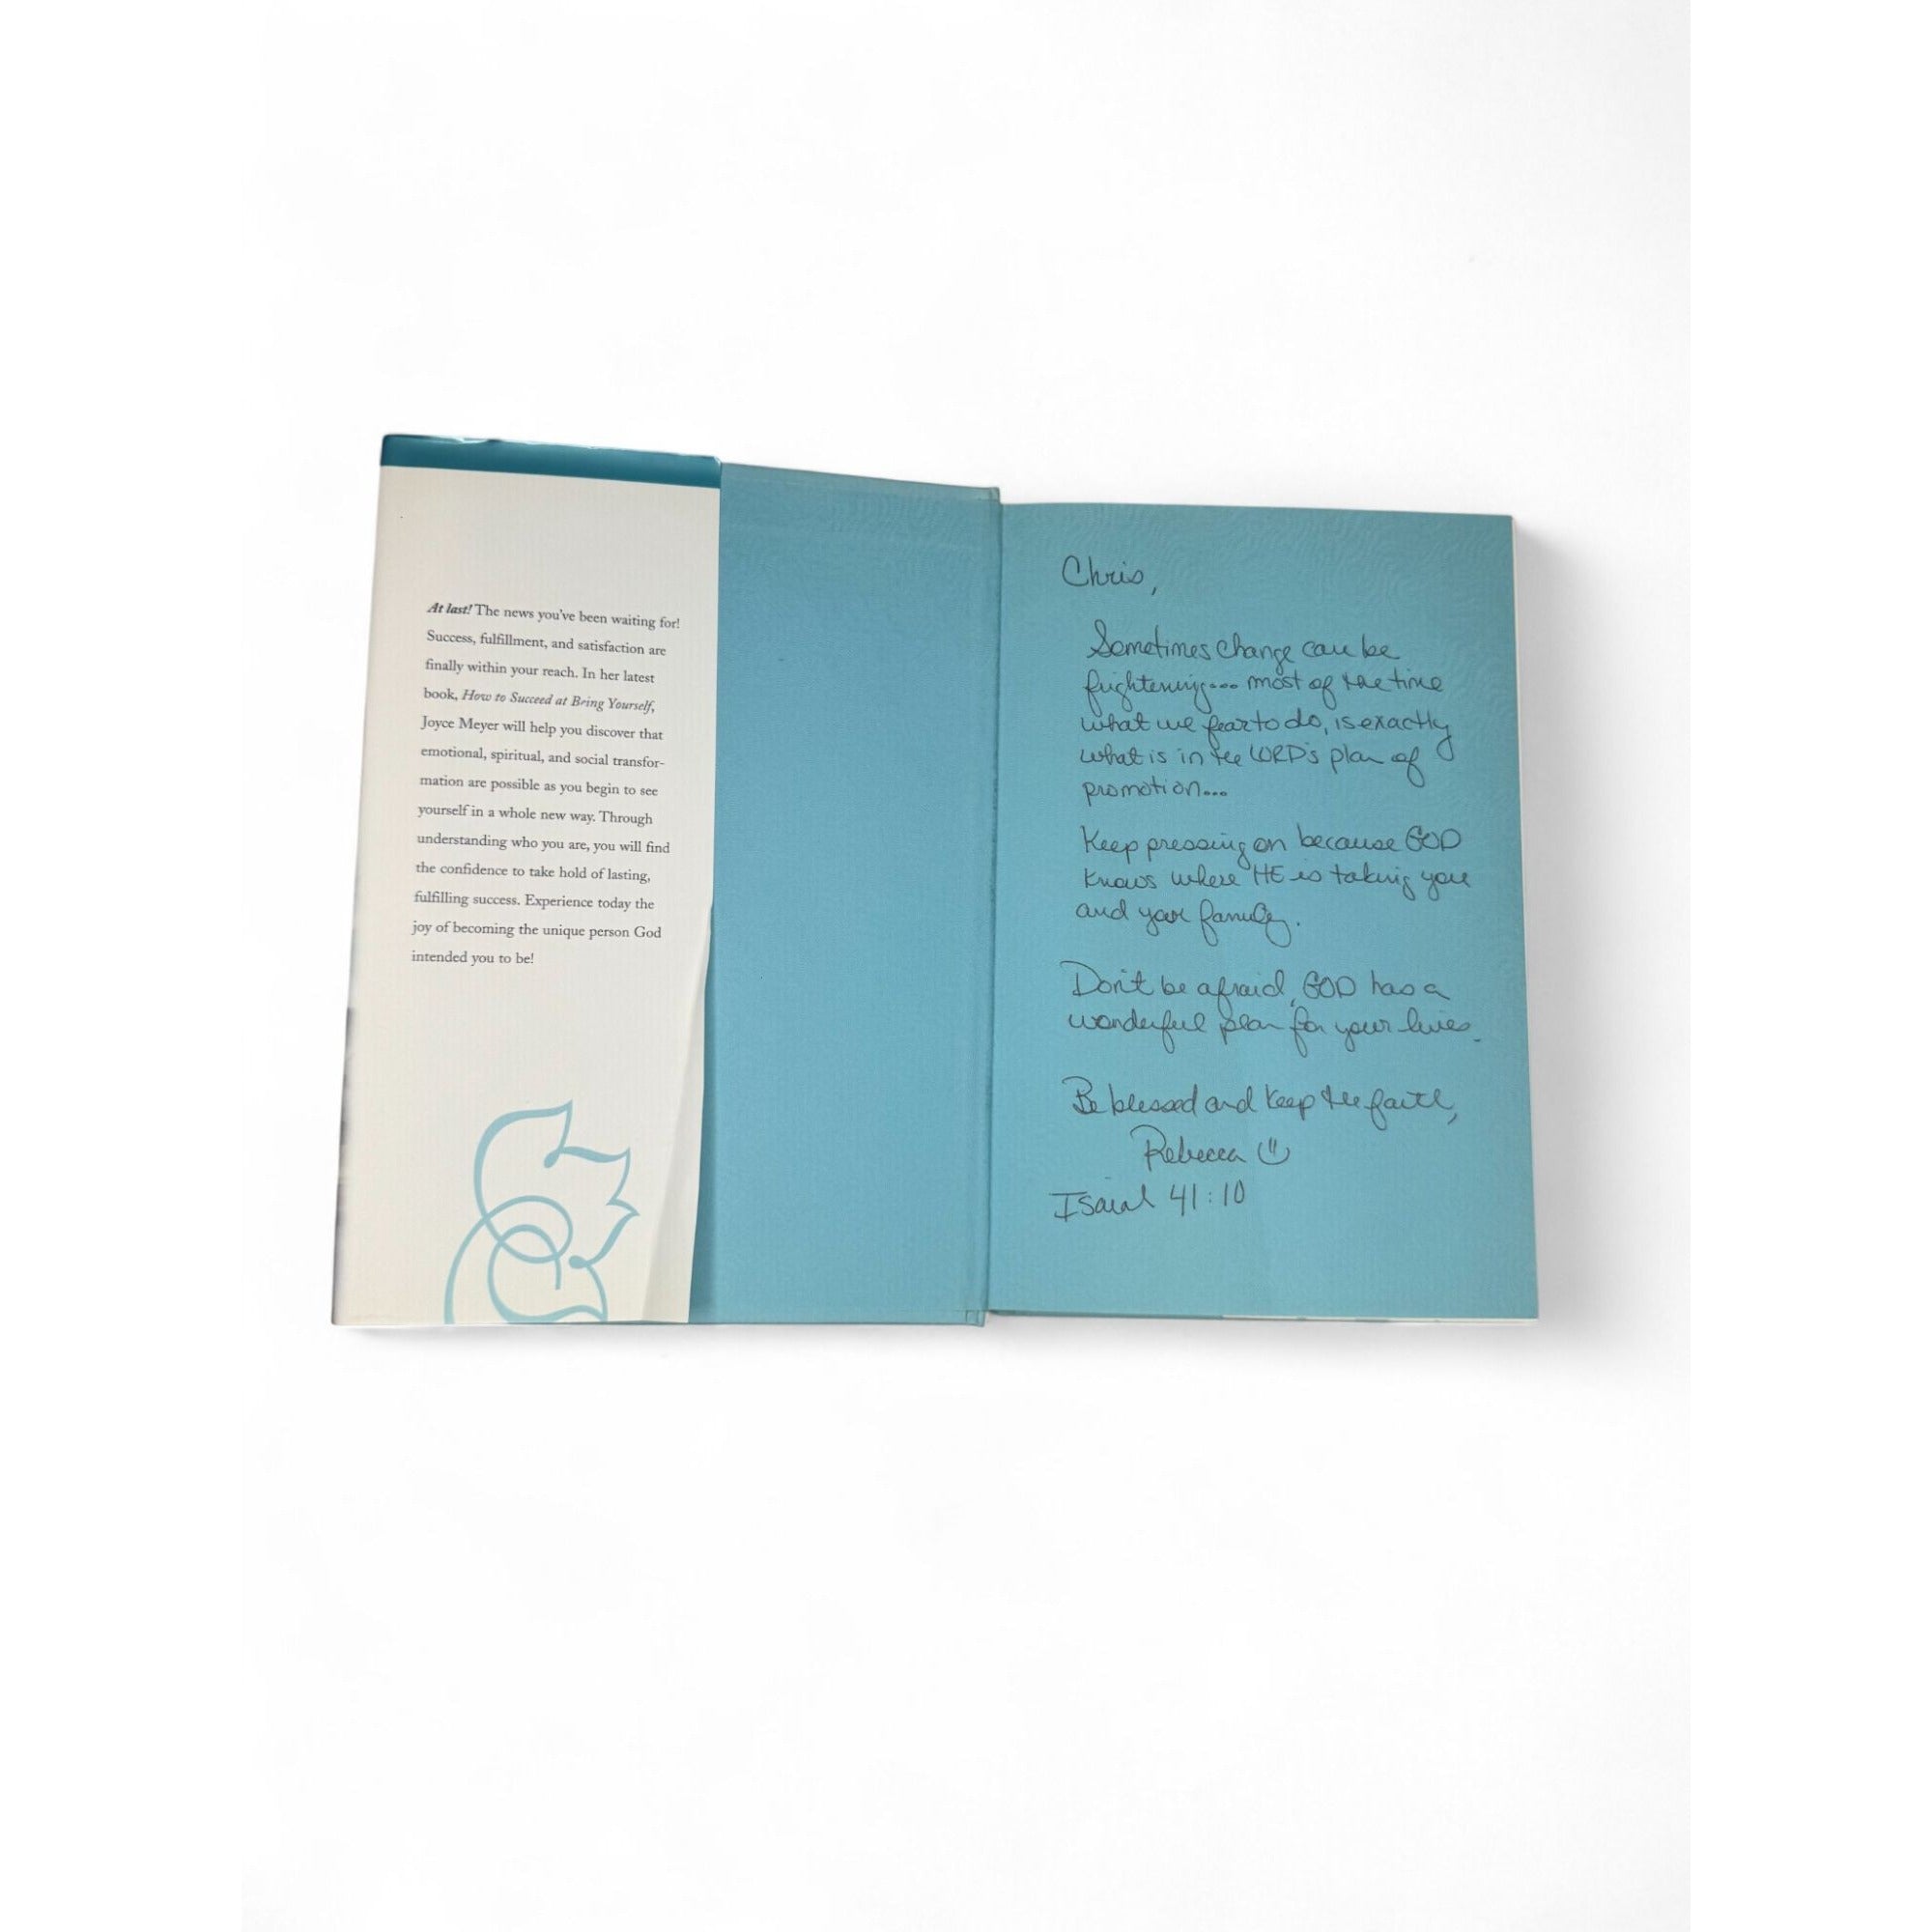 At last! The news you've been waiting for!
Success, fulfillment, and satisfaction are
finally within your reach. In her latest
book, How to Succeed at Being Yourself,
Joyce Meyer will help you discover that
emotional, spiritual, and social transfor-
mation are possible as you begin to see
yourself in a whole new way. Through
understanding who you are, you will find
the confidence to take hold of lasting,
fulfilling success. Experience today the
joy of becoming the unique person God
intended you to be!
Chris,
Sometimes change can be
frightening... most of the time
what we fear to do, is exactly
what is in the LORD's plan of
promotion...
Keep pressing on because GOD
knows where HE is taking you
and your family.
Don't be afraid, GOD has a
wonderful plan for your lives.
Be blessed and keep the faith,
Rebecca
Isaiah 41:10